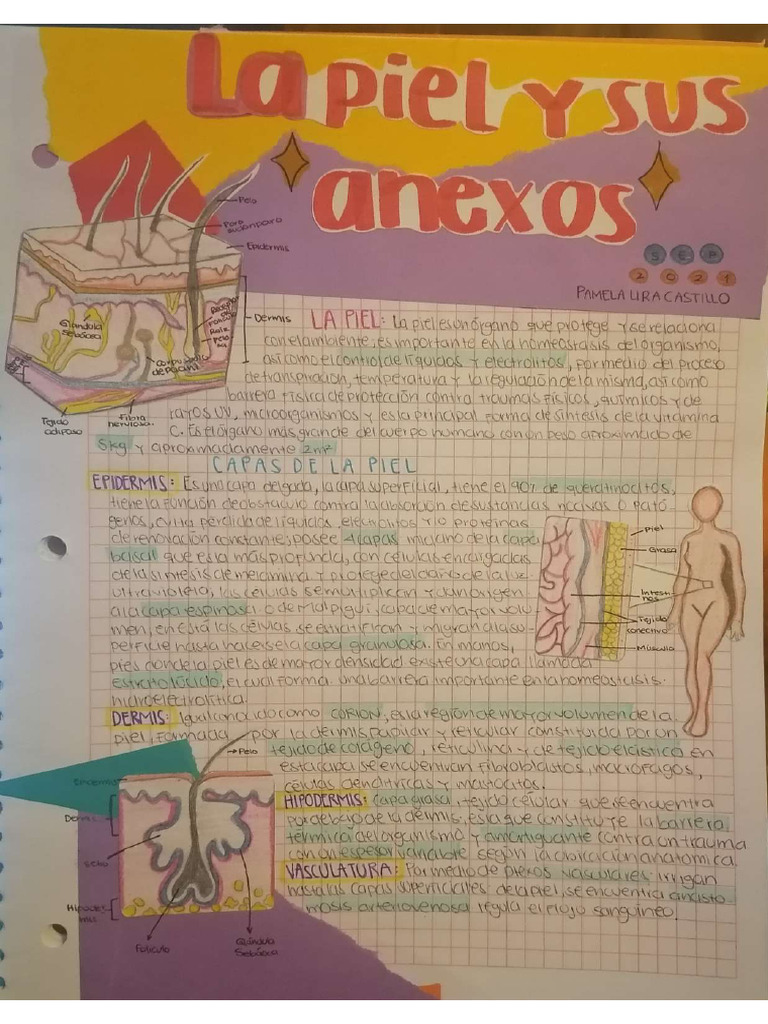 La piel y sus
anexos
SEP
2021
PAMELA LIRA CASTILLO
Pelo
Poro sudoríparo
Epidermis
Dermis
Glándula
Sebácea
Corpúsculo
de pacini
Raíz
pelo
Tejido
adiposo
Fibra
nerviosa.
LA PIEL: La piel es un órgano que protege y se relaciona
con el ambiente, es importante en la homeostasis del organismo,
así como el control de líquidos y electrolitos, por medio del proceso
de transpiración, temperatura y la regulación de la misma, así como
barrera física de protección contra traumas físicos, químicos y de
rayos UV, microorganismos y es la principal forma de síntesis de la vitamina
C. Es el órgano más grande del cuerpo humano, con un peso aproximado de
5kg y aproximadamente 2m²
CAPAS DE LA PIEL
EPIDERMIS: Es una capa delgada, la capa superfilial, tiene el 90% de quercitinocitos,
tiene la función de obstáculo contra la absorción de sustancias nocivas o pató
genos, evita pérdida de líquidos, electrolitos y/o proteínas
de renovación constante; posee 4 capas, iniciano de la capa
basal que es la más profunda, con células encargadas
de la síntesis de melamina y protege del daño de la luz
ultravioleta, las células se multiplican y dan origen
a la capa espinosa o de malpigui, capa de mayor volu-
men, en está las células se estratifican y migran a la su-
perficie hasta hacerse la capa granulosa. En manos,
pies donde la piel es de mayor densidad existe una capa llamada
estrato lúcido, el cual forma una barrera importante en la homeostasis
hidroelectrolítica.
Piel
Grasa
Intesti
nos
Tejido
conectivo
Músculo
DERMIS: Igual conocido como CORION, es la región de mayor volumen de la
piel, formada por la dermis papilar y reticular constituida por un
tejido de colágeno, reticulina y de tejido elástico en
esta capa se encuentran fibroblastos, macrófagos,
células dendítricas y mastocitos.
HIPODERMIS: Capa grasa, tejido celular que se encuentra
por debajo de la dermis, es la que constituye la barrera
térmica del organismo y amortiguante contra con trauma
con un espesor variable según la ubicación anatomica
VASCULATURA: Por medio de plexos vasculares irrigan
hasta las capas superficiales de la piel, se encuentra anasto
mosis arteriovenosa regula el flujo sanguíneo.
Pelo
Epidermis
Dermis
Sebo
Hipoder
mis
Folículo
Glándula
Sebácea